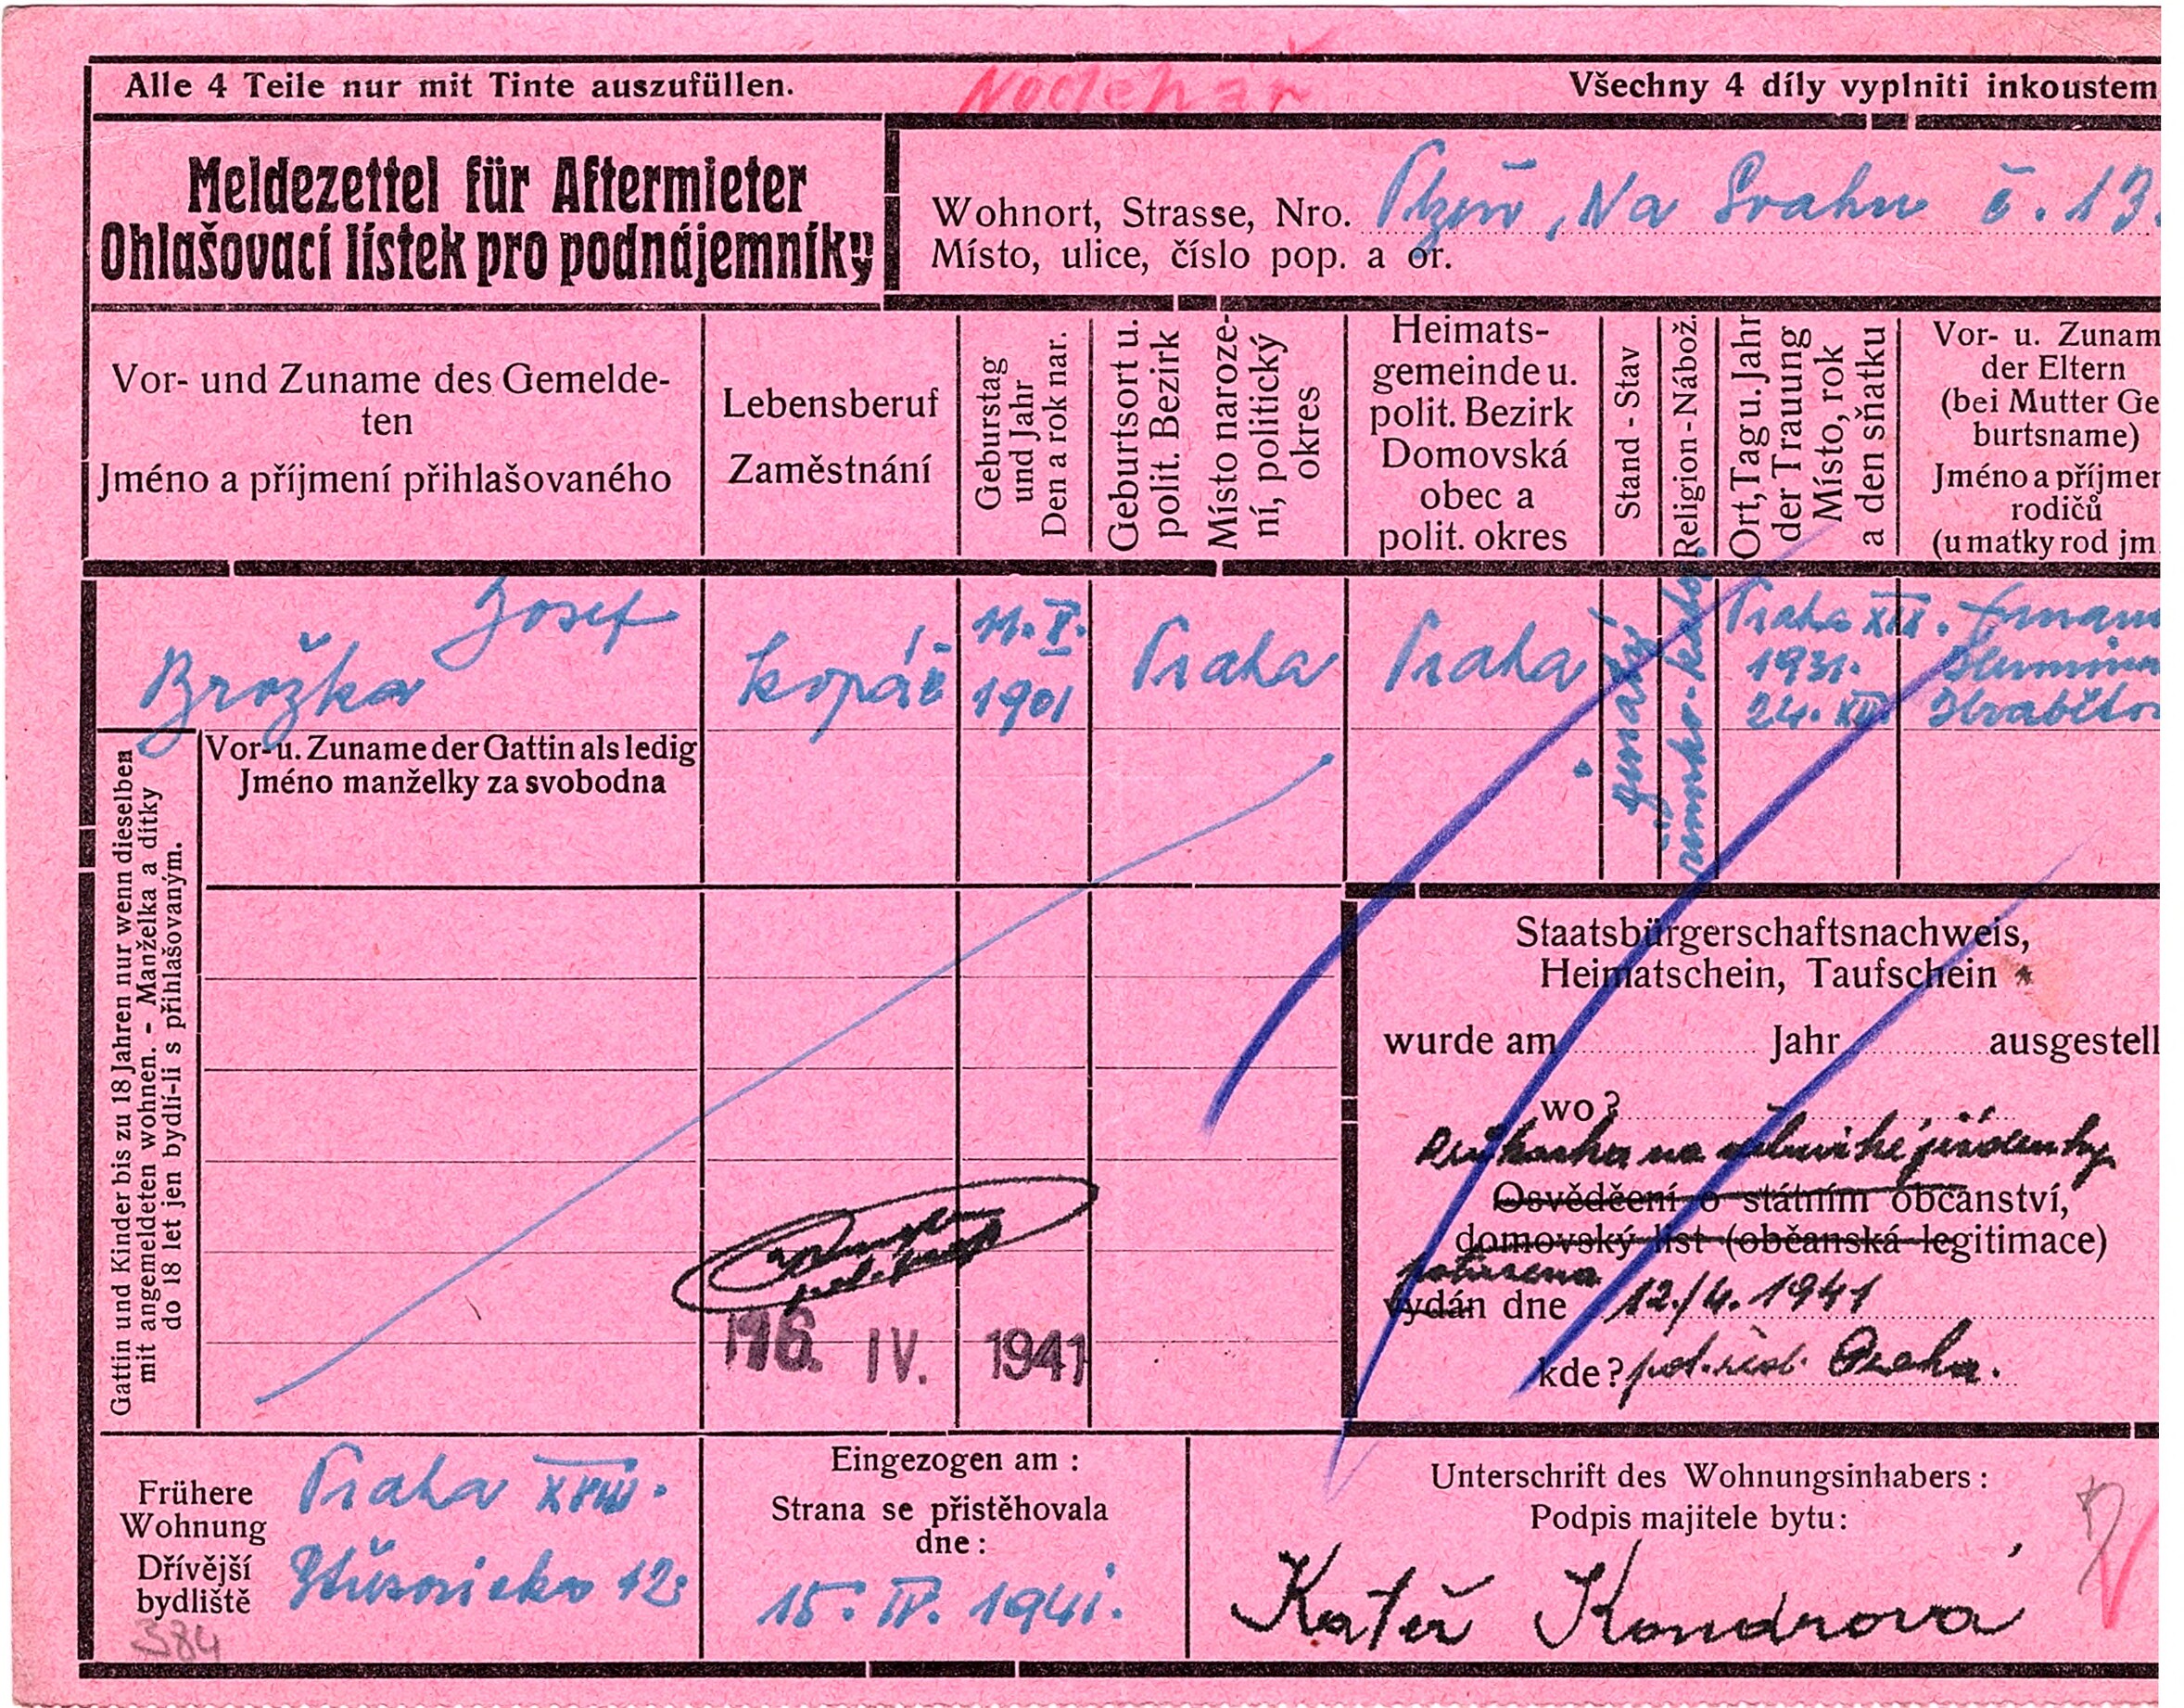 Alle 4 Teile nur mit Tinte auszufüllen.
Všechny 4 díly vyplniti inkoustem
Meldezettel für Aftermieter
Ohlašovací lístek pro podnájemníky
Wohnort, Strasse, Nro. Plzeň, Na Svahu č. 13.
Místo, ulice, číslo pop. a or.
Vor- und Zuname des Gemelde-
ten
Jméno a příjmení přihlašovaného
Lebensberuf
Zaměstnání
Geburstag
und Jahr
Den a rok nar.
Geburtsort u.
polit. Bezirk
Místo naroze-
ní, politický
okres
Heimats-
gemeinde u.
polit. Bezirk
Domovská
obec a
polit. okres
Stand - Stav
Religion - Nábož.
Ort, Tag u. Jahr
der Trauung
Místo, rok
a den sňatku
Vor- u. Zunam
der Eltern
(bei Mutter Ge
burtsname)
Jméno a příjmer
rodičů
(u matky rod jm.
Josef
Brožka
kopáč
11. X.
1901
Praha
Praha
ženatý
římsko-kath.
Praha XIX.
1931.
24. XII
Vor- u. Zuname der Gattin als ledig
Jméno manželky za svobodna
Gattin und Kinder bis zu 18 Jahren nur wenn dieselben
mit angemeldeten wohnen. - Manželka a dítky
do 18 let jen bydlí-li s přihlašovaným.
Staatsbürgerschaftsnachweis,
Heimatschein, Taufschein
wurde am Jahr ausgestell
wo ?
Osvědčení o státním občanství,
domovský list (občanská legitimace)
potvrzena
vydán dne 12./4. 1941
kde? pol. řed. Praha.
16. IV. 1941
Frühere
Wohnung
Dřívější
bydliště
Praha XVIII.
12
384
Eingezogen am :
Strana se přistěhovala
dne :
15. IV. 1941.
Unterschrift des Wohnungsinhabers :
Podpis majitele bytu:
Kateř Kondrová